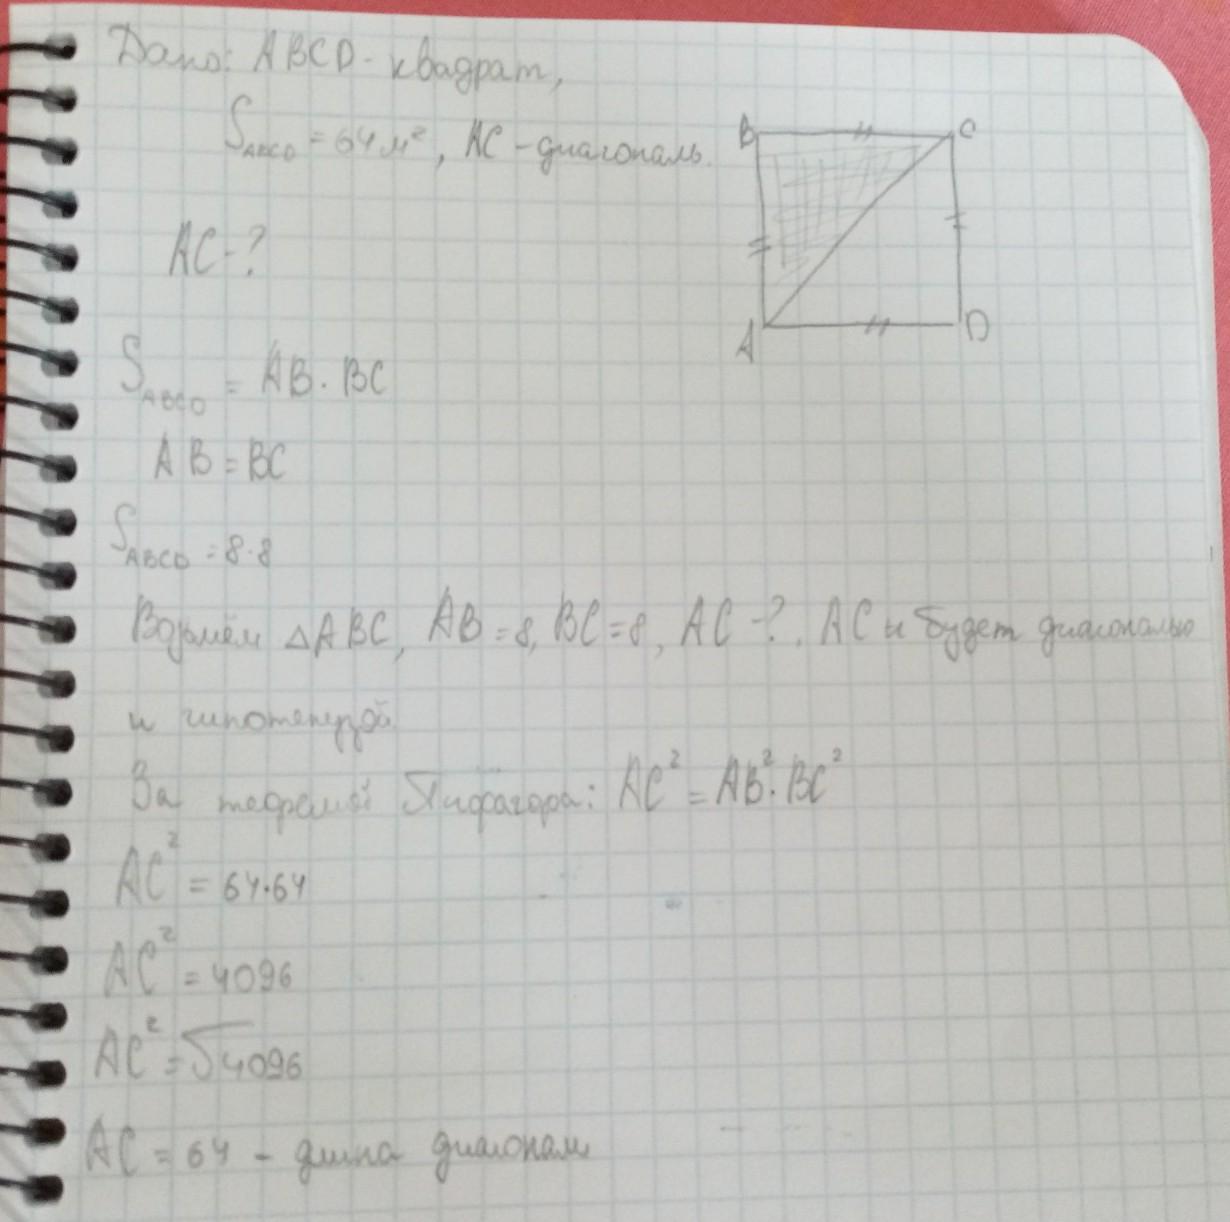 Дано: ABCD - квадрат,
S ABCD = 64 м², AC - диагональ.
B
C
A
D
AC - ?
S ABCD = AB · BC
AB = BC
S ABCD = 8·8
Возьмём △ABC, AB = 8, BC = 8, AC - ?. AC и будет диагональю
и гипотенузой
За теоремой Пифагора: AC² = AB² · BC²
AC² = 64·64
AC² = 4096
AC² = √4096
AC = 64 - длина диагонали